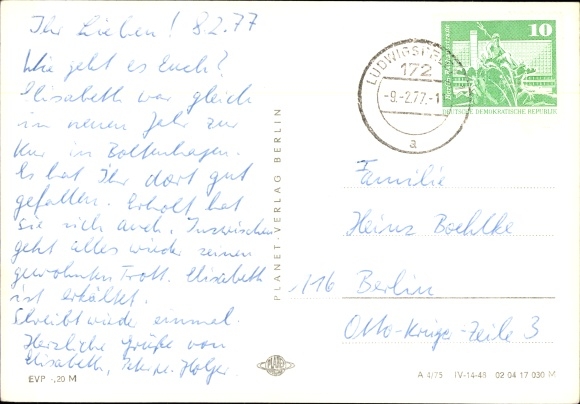 Ihr Lieben! 8.2.77
Wie geht es Euch?
Elisabeth war gleich
im neuen Jahr zur
Kur in Boltenhagen.
Es hat Ihr dort gut
gefallen. Erholt hat
sie sich auch. Inzwischen
geht alles wieder seinen
gewohnten Trott. Elisabeth
ist erkältet.
Schreibt wieder einmal.
Herzliche Grüße von
Elisabeth, Holger.
EVP -,20 M
PLANET-VERLAG BERLIN
PLANET
10
DEUTSCHE DEMOKRATISCHE REPUBLIK
172
-9.-2.77.-1
a
Familie
Heinz Boehlke
116 Berlin
Otto-Krüger-Zeile 3
A 4/75 IV-14-48 02 04 17 030 M